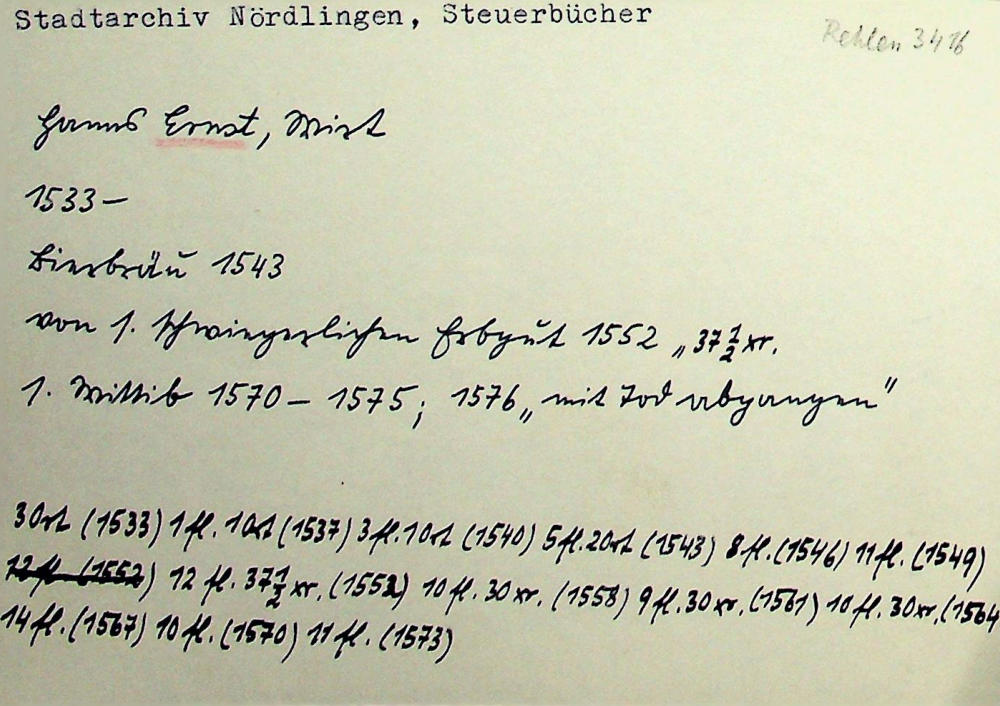 Stadtarchiv Nördlingen, Steuerbücher
Rehlen 3416
Hanns Ernst, Wirt
1533–
Bierbräu 1543
von s. schwiegerlichen Erbgut 1552 „37 1/2 xr.
s. Wittib 1570 – 1575; 1576 „mit Tod abgangen"
3 Ort (1533) 1 fl. 1 Ort (1537) 3 fl. 1 Ort (1540) 5 fl. 2 Ort (1543) 8 fl. (1546) 11 fl. (1549)
12 fl (1552) 12 fl. 37 1/2 xr. (1552) 10 fl. 30 xr. (1558) 9 fl. 30 xr. (1561) 10 fl. 30 xr. (1564
14 fl. (1567) 10 fl. (1570) 11 fl. (1573)